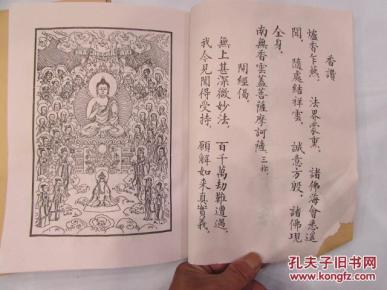 香讚
爐香乍爇、法界蒙熏、諸佛海會悉遙
聞、隨處結祥雲、誠意方殷、諸佛現
全身、
南無香雲蓋菩薩摩訶薩、三稱、
開經偈、
無上甚深微妙法、百千萬劫難遭遇、
我今見聞得受持、願解如來真實義、
孔夫子旧书网